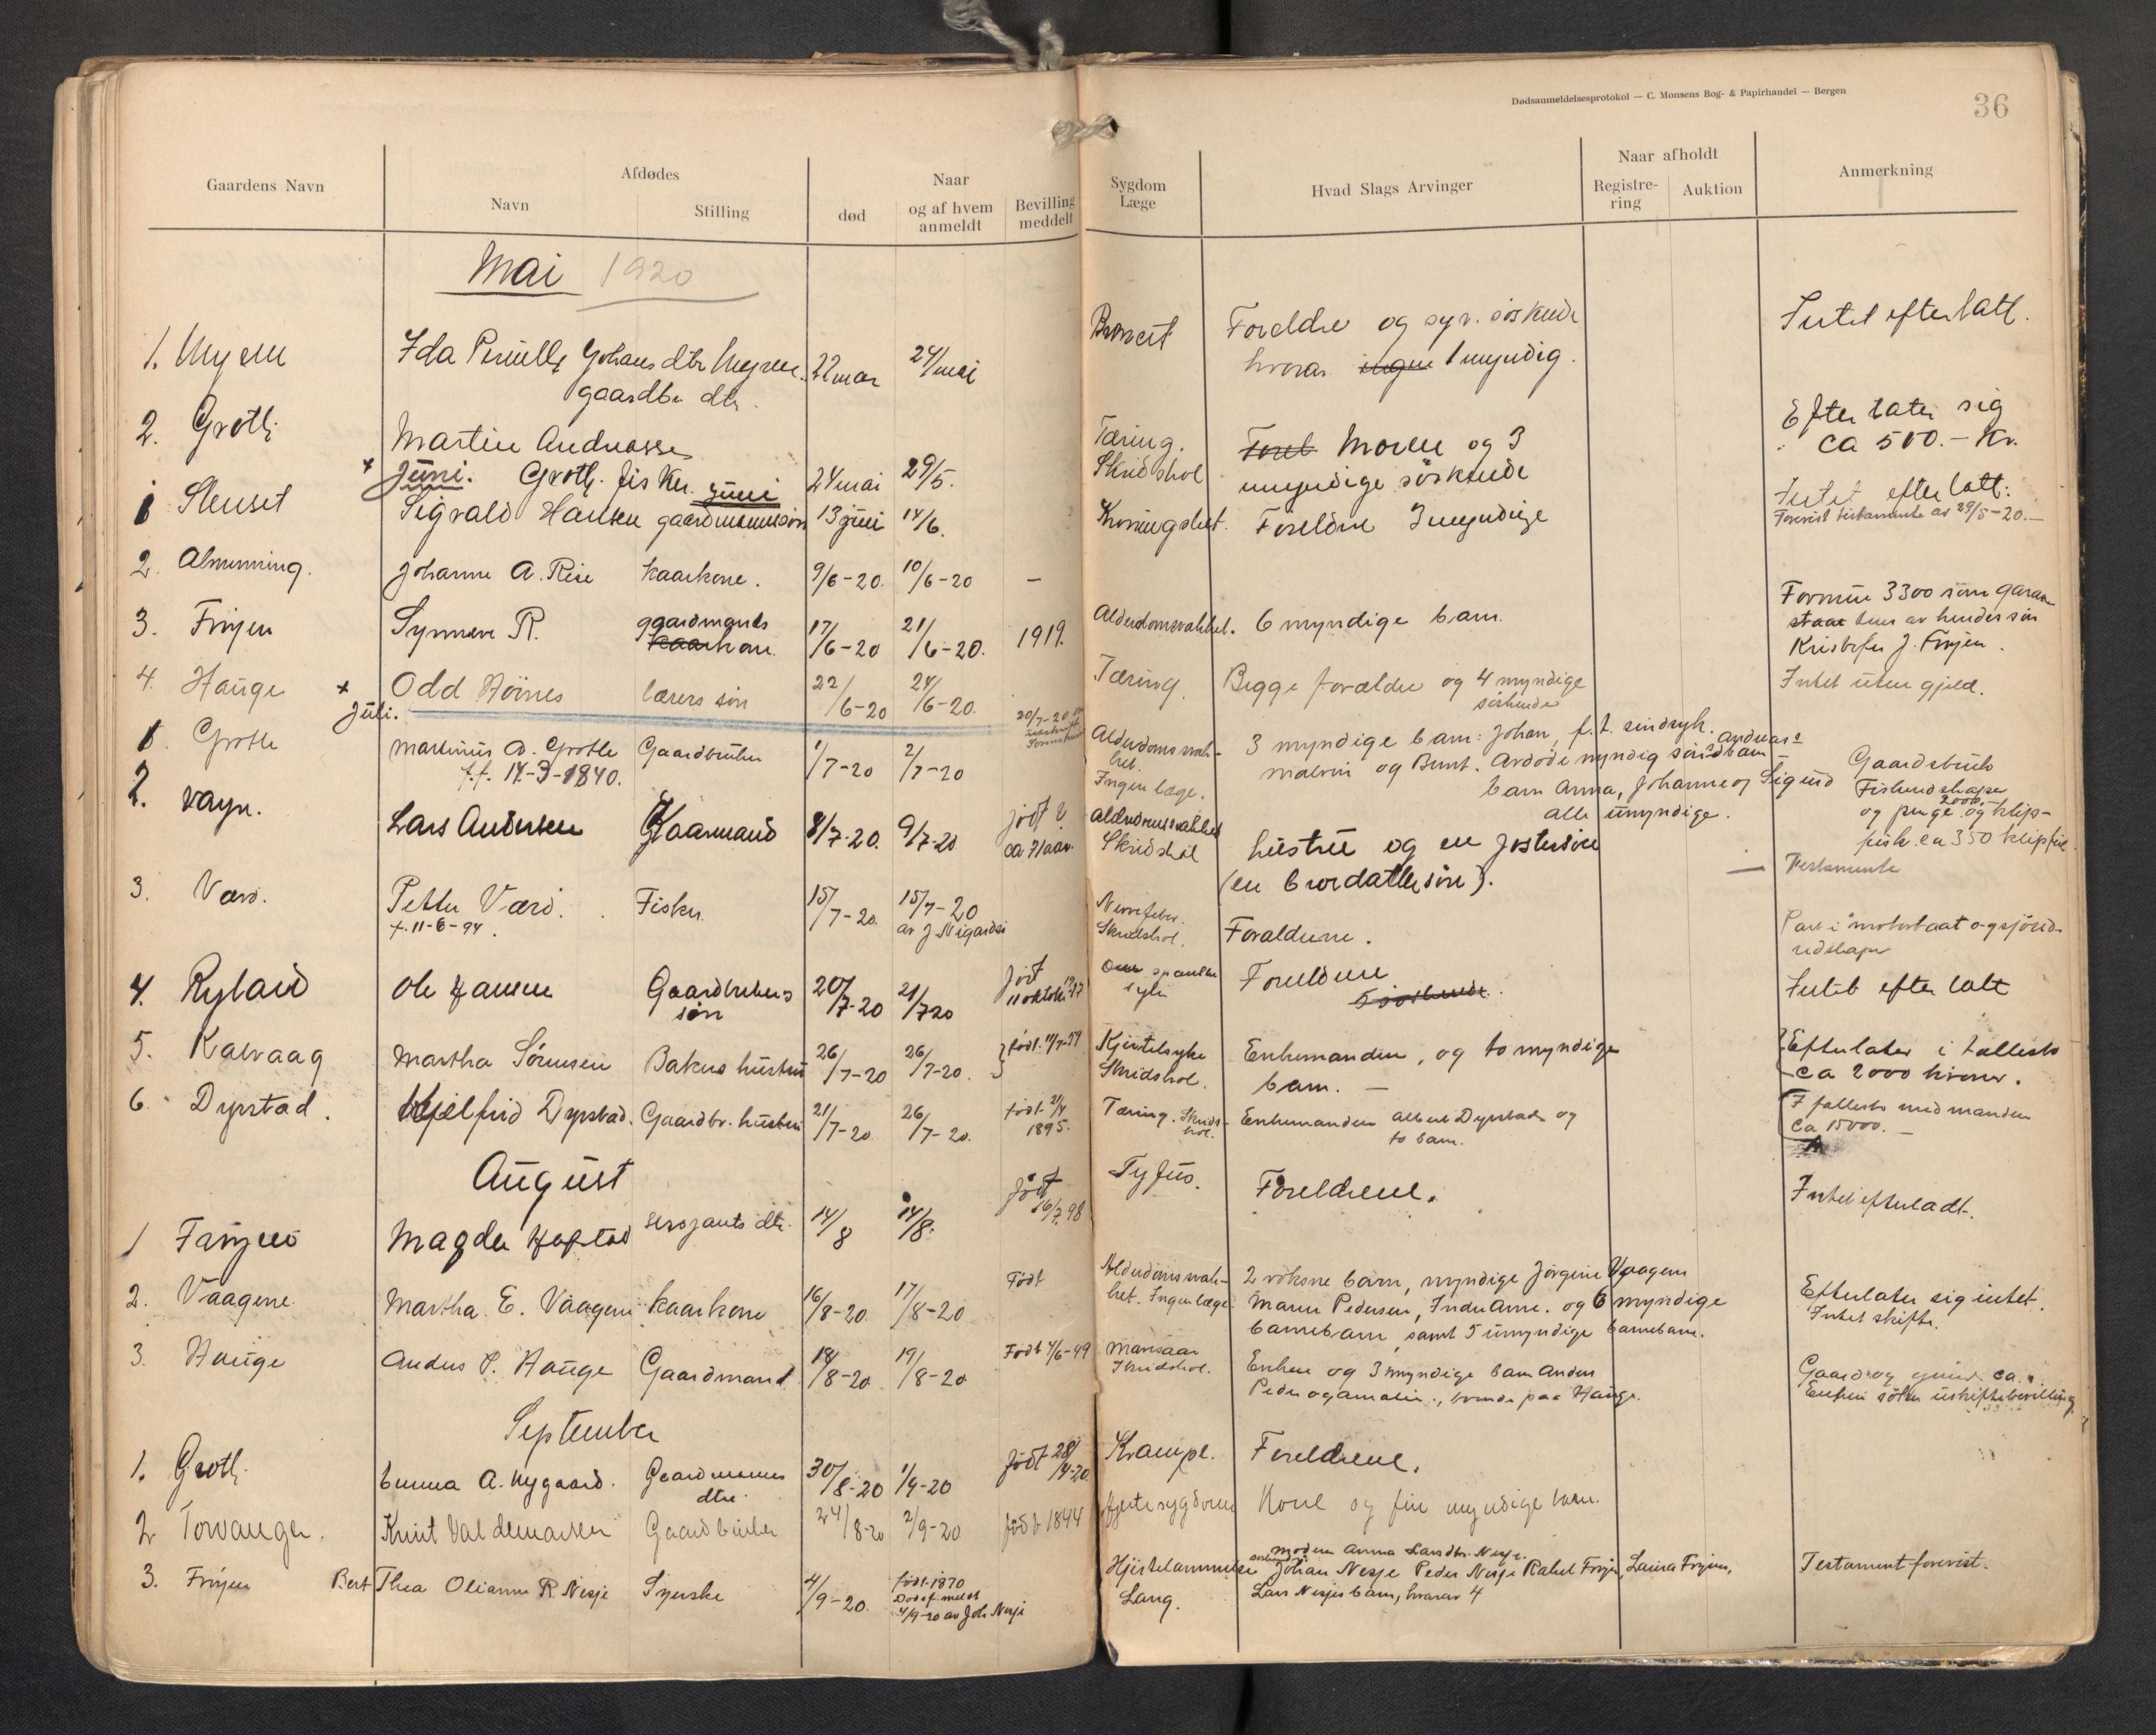 Dødsanmeldelsesprotokol — C. Monsens Bog- & Papirhandel — Bergen
36
Gaardens Navn
Afdødes
Navn
Stilling
Naar
død
og af hvem anmeldt
Bevilling meddelt
Sygdom
Læge
Hvad Slags Arvinger
Naar afholdt
Registre-
ring
Auktion
Anmerkning
Mai 1920
1. Myren Ida Pernille Johans dtr Myren 22 mai 24/mai Foreldre og syv søskende Intet efterlatt.
gaardbr dtr. hvorav ingen 1 myndig.
2. Grotle Martin Andreassen Tæring. Foreld Moren og 3 Efterlater sig
Grotle fisker 24 mai 29/5. Skridshol umyndige søskende ca 500.- Kr.
Juni. Juni
1 Sigvald Hansen gaardmannssøn 13 juni 14/6. Foreldre 3 myndige Intet efterlatt:
Forevist testamente av 29/5-20.-
2. Almenning. Johanne A. Rise Kaarkone. 9/6-20. 10/6-20 —
3. Frøyen Synneve R. gaardmands Kaarkone. 17/6-20 21/6-20. 1919. Alderdomsvakhet. 6 myndige barn. Formue 3300 som
staar hos av hendes søn
Kristofer J. Frøyen.
4. Hauge Odd Høines lærers søn 22/6-20 24/6-20. Tæring. Begge forældre og 4 myndige Intet uten gjeld.
søskende
Juli.
1. Grotle Martinus A. Grotle Gaardbruker 1/7-20 2/7-20 20/7-20 Alderdomsvak-
f.f. 14-3-1840. het. Ingen læge. 3 myndige barn: Johan, f.t. sindsyk. Andreas
Malvin og Bernt. Avdøde myndig søns barn
barn Anna, Johanne og Sigurd
alle umyndige.
Gaardsbruk
Fiskeredskaper
og penge 2000.- og klip-
fisk ca 350 klipfisk.
2. Vaagn. Lars Andersen Kaarmand 8/7-20. 9/7-20 født ca 71 aar. Alderdomssvakhet
Skridshol hustru og en fostersøn
(en brordattersøn). — Testamente
3. Værø. Petter Værø. Fisker. 15/7-20. 15/7-20
f. 11-6-94. av J Nigardsø Nervefeber.
Skridshol. Foraldrene. Part i motorbaat og sjøred-
redskaper
4. Ryland Ole Hansen Gaardbrukers søn 20/7-20 21/7 20 født 11 oktober Foreldrene Intet efterlatt
5 søskende.
5. Kalvaag Martha Sørensen Bakers hustru 26/7-20 26/7-20. født. Kjertelsyke
Skridshol. Enkemanden, og to myndige
barn. — Efterlater i fællesbo
ca 2000 kroner.
6. Dyrstad. Hjelfrid Dyrstad. Gaardbr. hustru 21/7-20. 26/7-20. født 21/4 1895. Tæring. Skrids-
hol. Enkemanden Albert Dyrstad og
to barn. I fællesbo med manden
ca 15000.—
August
1 Magda Hopstad sersjants dtr. 14/8 14/8. født 16/7 98 Tyfus. Foreldrene. Intet efterladt.
2. Vaagene. Martha E. Vaagene Kaarkone 16/8-20. 17/8-20 Født Alderdomsvak-
het. Ingen læge. 2 voksne barn, myndige Jørgine Vaagene
Maren Pedersen, Indre Arne. og 6 myndige
barnebarn, samt 5 umyndige barnebarn. Efterlater sig intet.
Intet skifte.
3. Hauge Anders P. Hauge Gaardmand 18/8-20. 19/8-20 Født 4/6-49 Mavesaar
Skridshol. Enken og 3 myndige barn Anders
Peder og Amalie., boende paa Hauge. Gaard og grund ca.
Enken søker uskiftebevilling
September
1. Grotle Emma A. Nygaard. Gaardmanns dtr. 30/8-20 1/9-20 født 28/4-20. Krampe. Foreldrene.
2 Torvanger. Knut Valdemarsen Gaardbruker 24/8-20 2/9-20 født 1844 Hjertesygdom Kone og fire myndige barn.
3. Frøyen Bert Thea Olianne R. Nesje Syerske 4/9-20. født 1870
Dødsf. meldt
4/9-20 av Joh Nesje Hjertelammelse
Lang. moderen Anna Larsdtr. Nesje.
søsken Johan Nesje Peder Nesje Rakel Frøyen, Laura Frøyen,
Lars Nesjes barn, hvorav 4 Testament forevist.